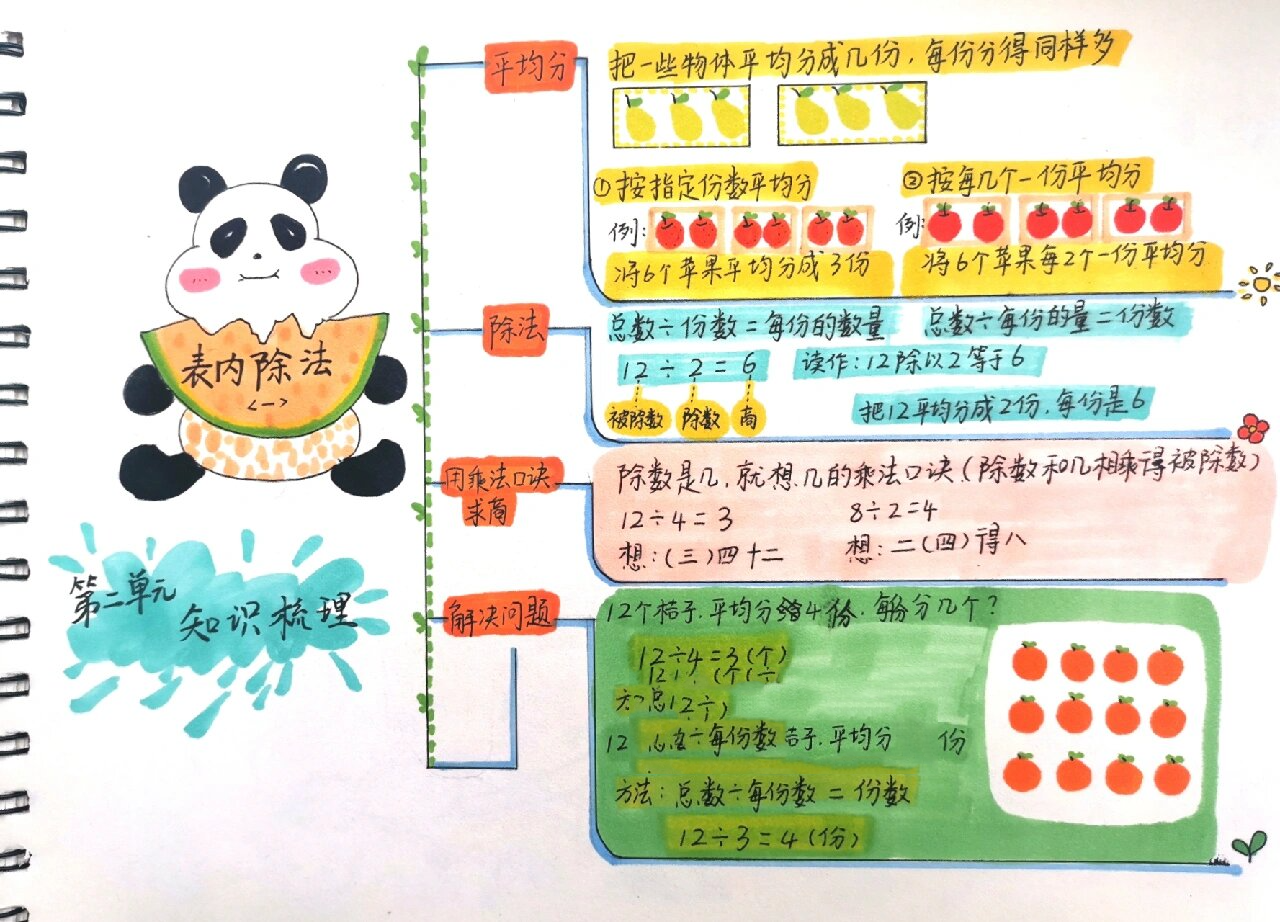 表内除法
<一>
第二单元
知识梳理
平均分
把一些物体平均分成几份，每份分得同样多
①按指定份数平均分
例：
将6个苹果平均分成3份
②按每几个一份平均分
例:
将6个苹果每2个一份平均分
除法
总数÷份数=每份的数量
总数÷每份的量=份数
12÷2=6
读作：12除以2等于6
被除数 除数 商
把12平均分成2份，每份是6
用乘法口诀
求商
除数是几，就想几的乘法口诀（除数和几相乘得被除数）
12÷4=3
8÷2=4
想：（三）四十二
想：二（四）得八
解决问题
12个桔子，平均分 4 ，每份分几个？
12÷4=3(个)
12
÷每份数 桔子，平均分 份
方法：总数÷每份数=份数
12÷3=4(份)